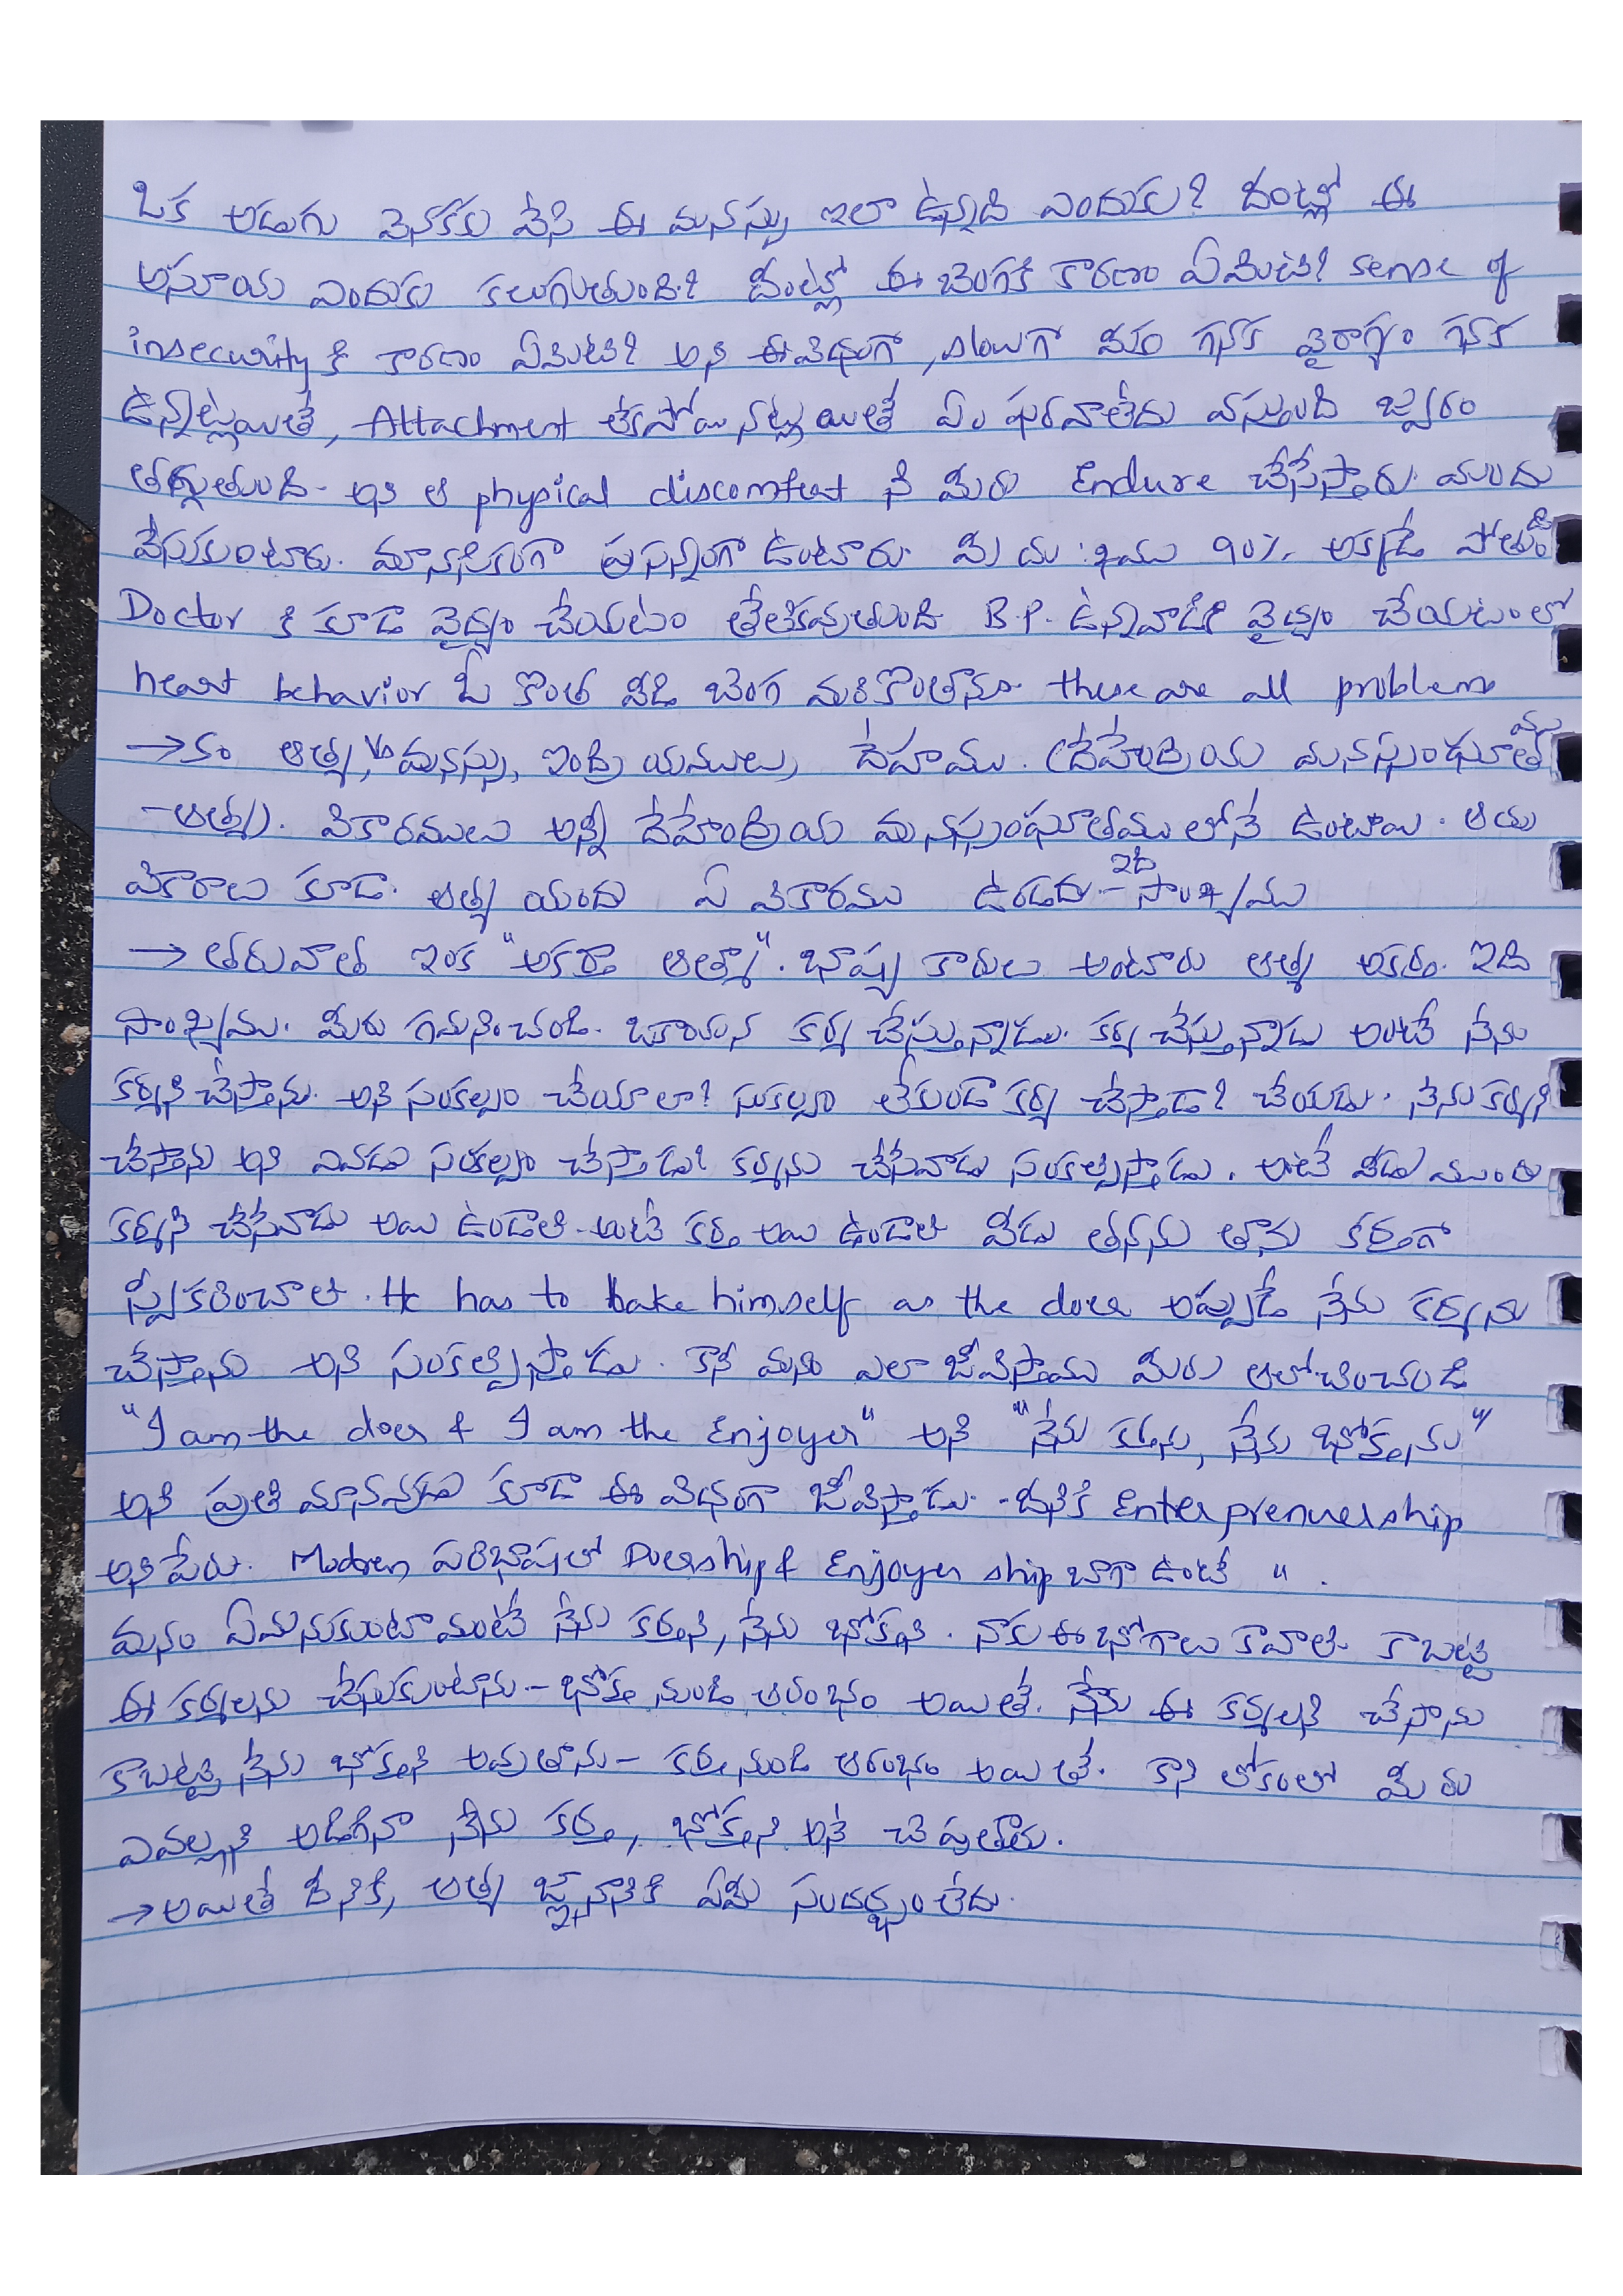 ఒక అడుగు వెనకకు వేసి ఈ మనస్సు ఇలా ఉన్నాది ఎందుకు? దీంట్లో ఈ
అసూయ ఎందుకు కలుగుతుంది? దీంట్లో ఈ బెంగకి కారణం ఏమిటి? sense of
insecurity కి కారణం ఏమిటి? అని ఈవిధంగా, slowగా మీరు గనక వైరాగ్యం గనక
ఉన్నట్లయితే, Attachment లేకపోయినట్లయితే ఏం ఫరవాలేదు వస్తుంది జ్వరం
తగ్గుతుంది - అని ఆ physical discomfort ని మీరు Endure చేసేస్తారు. మందు
వేసుకుంటారు. మానసికంగా ప్రసన్నంగా ఉంటారు. మీ దుఃఖము 90% అక్కడే పోతుంది
Doctor కి కూడా వైద్యం చేయటం తేలికవుతుంది B.P. ఉన్నవాడికి వైద్యం చేయటంలో
heart behavior ఓ కొంత వీడి బెంగ మరికొంతాను these are all problems
→కం ఆత్మ, Vs మనస్సు, ఇంద్రియములు, దేహము. (దేహేంద్రియ మనస్సంఘాతము
-ఆత్మ). వికారములు అన్నీ దేహేంద్రియ మనస్సంఘాతము లోనే ఉంటాయి. ఆయ
వికారాలు కూడా. ఆత్మ యందు ఏ వికారము ఉండదు - ఇది సాంఖ్యము
→ తరువాత ఇంక "అకర్తా ఆత్మా". భాష్య కారులు అంటారు ఆత్మ అకర్త. ఇది
సాంఖ్యము. మీరు గమనించండి. ఒకాయన కర్మ చేస్తున్నాడు. కర్మ చేస్తున్నాడు అంటే నేను
కర్మని చేస్తాను. అని సంకల్పం చేయాలా? సంకల్పం లేకుండా కర్మ చేస్తాడా? చేయడు. నేను కర్మని
చేస్తాను అని ఎవడు సంకల్పం చేస్తాడు? కర్మను చేసేవాడు సంకల్పిస్తాడు. అంటే వీడు ముందు
కర్మని చేసేవాడు అయి ఉండాలి - అంటే కర్త అయి ఉండాలి వీడు తనను తాను కర్తగా
స్వీకరించాలి. He has to take himself as the doer అప్పుడే నేను కర్మను
చేస్తాను అని సంకల్పిస్తాడు. కానీ మనం ఎలా జీవిస్తాము మీరు ఆలోచించండి
"I am the doer & I am the Enjoyer" అని "నేను కర్తను, నేను భోక్తను"
అని ప్రతి మానవుడు కూడా ఈ విధంగా జీవిస్తాడు. - దీనికి Enterprenuership
అని పేరు. Modren పరిభాషలో Doership & Enjoyer ship బాగా ఉంటే ".
మనం ఏమనుకుంటామంటే నేను కర్తని, నేను భోక్తని. నాకు ఈ భోగాలు కావాలి. కాబట్టి
ఈ కర్మలను చేసుకుంటాను - భోక్త నుండి ఆరంభం అయితే. నేను ఈ కర్మలని చేసాను
కాబట్టి నేను భోక్తని అవుతాను - కర్త నుండి ఆరంభం అయితే. కాని లోకంలో మీరు
ఎవళ్ళని అడిగినా నేను కర్త, భోక్తని అనే చెపుతారు.
→అయితే దీనికి, ఆత్మ జ్ఞానానికి ఏమీ సందర్భం లేదు.